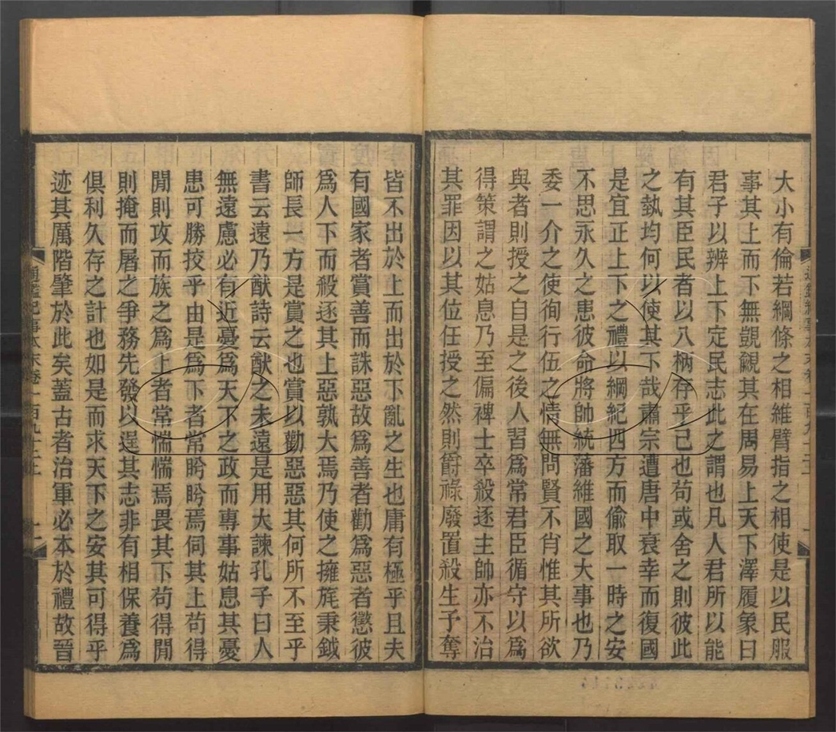 大小有倫若綱條之相維臂指之相使是以民服
事其上而下無覬覦其在周易上天下澤履象曰
君子以辨上下定民志此之謂也凡人君所以能
有其臣民者以八柄存乎己也苟或舍之則彼此
之埶均何以使其下哉肅宗遭唐中衰幸而復國
是宜正上下之禮以綱紀四方而偷取一時之安
不思永久之患彼命將帥統藩維國之大事也乃
委一介之使徇行伍之情無問賢不肖惟其所欲
與者則授之自是之後人習為常君臣循守以為
得策謂之姑息乃至偏裨士卒殺逐主帥亦不治
其罪因以其位任授之然則爵祿廢置殺生予奪
通鑑紀事本末卷一百九十三上
皆不出於上而出於下亂之生也庸有極乎且夫
有國家者賞善而誅惡故為善者勸為惡者懲彼
為人下而殺逐其上惡孰大焉乃使之擁旄秉鉞
師長一方是賞之也賞以勸惡惡其何所不至乎
書云遠乃猷詩云猷之未遠是用大諫孔子曰人
無遠慮必有近憂為天下之政而專事姑息其憂
患可勝挍乎由是為下者常眄眄焉伺其上苟得
閒則攻而族之為上者常惴惴焉畏其下苟得閒
則掩而屠之爭務先發以逞其志非有相保養為
俱利久存之計也如是而求天下之安其可得乎
迹其厲階肇於此矣蓋古者治軍必本於禮故晉